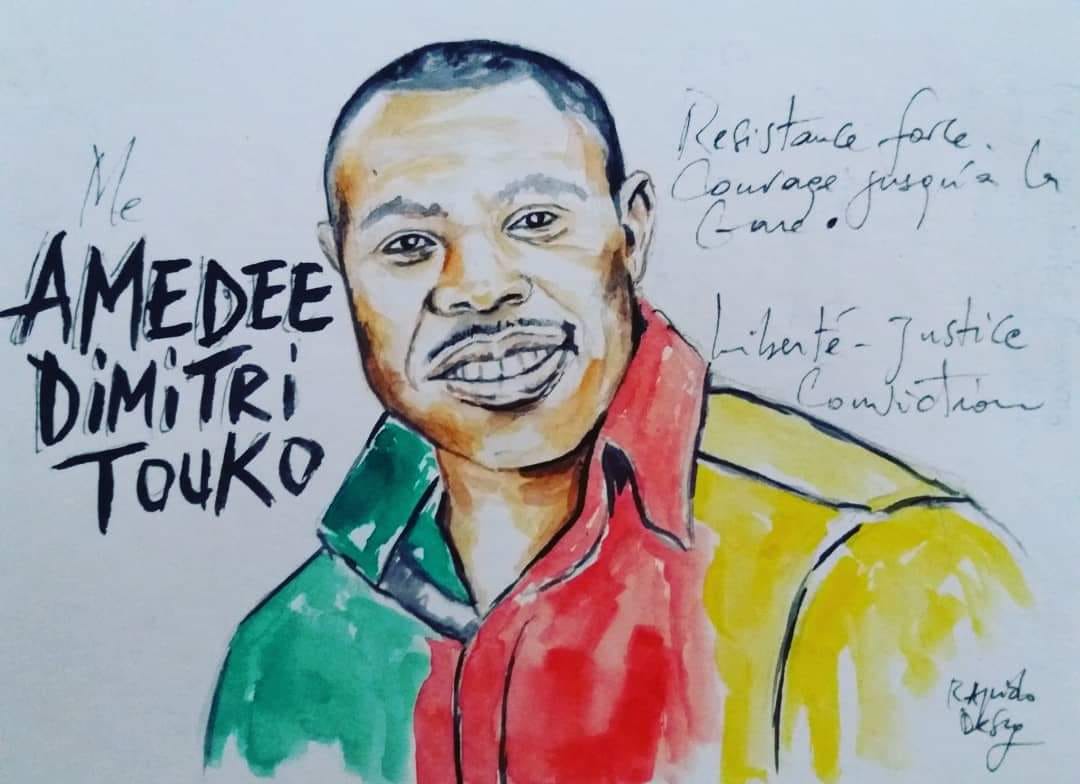 Me
AMEDEE
DIMITRI
TOUKO
Resistance force.
Courage jusqu'à la
Gare.
Liberté - Justice
Conviction
Rapido